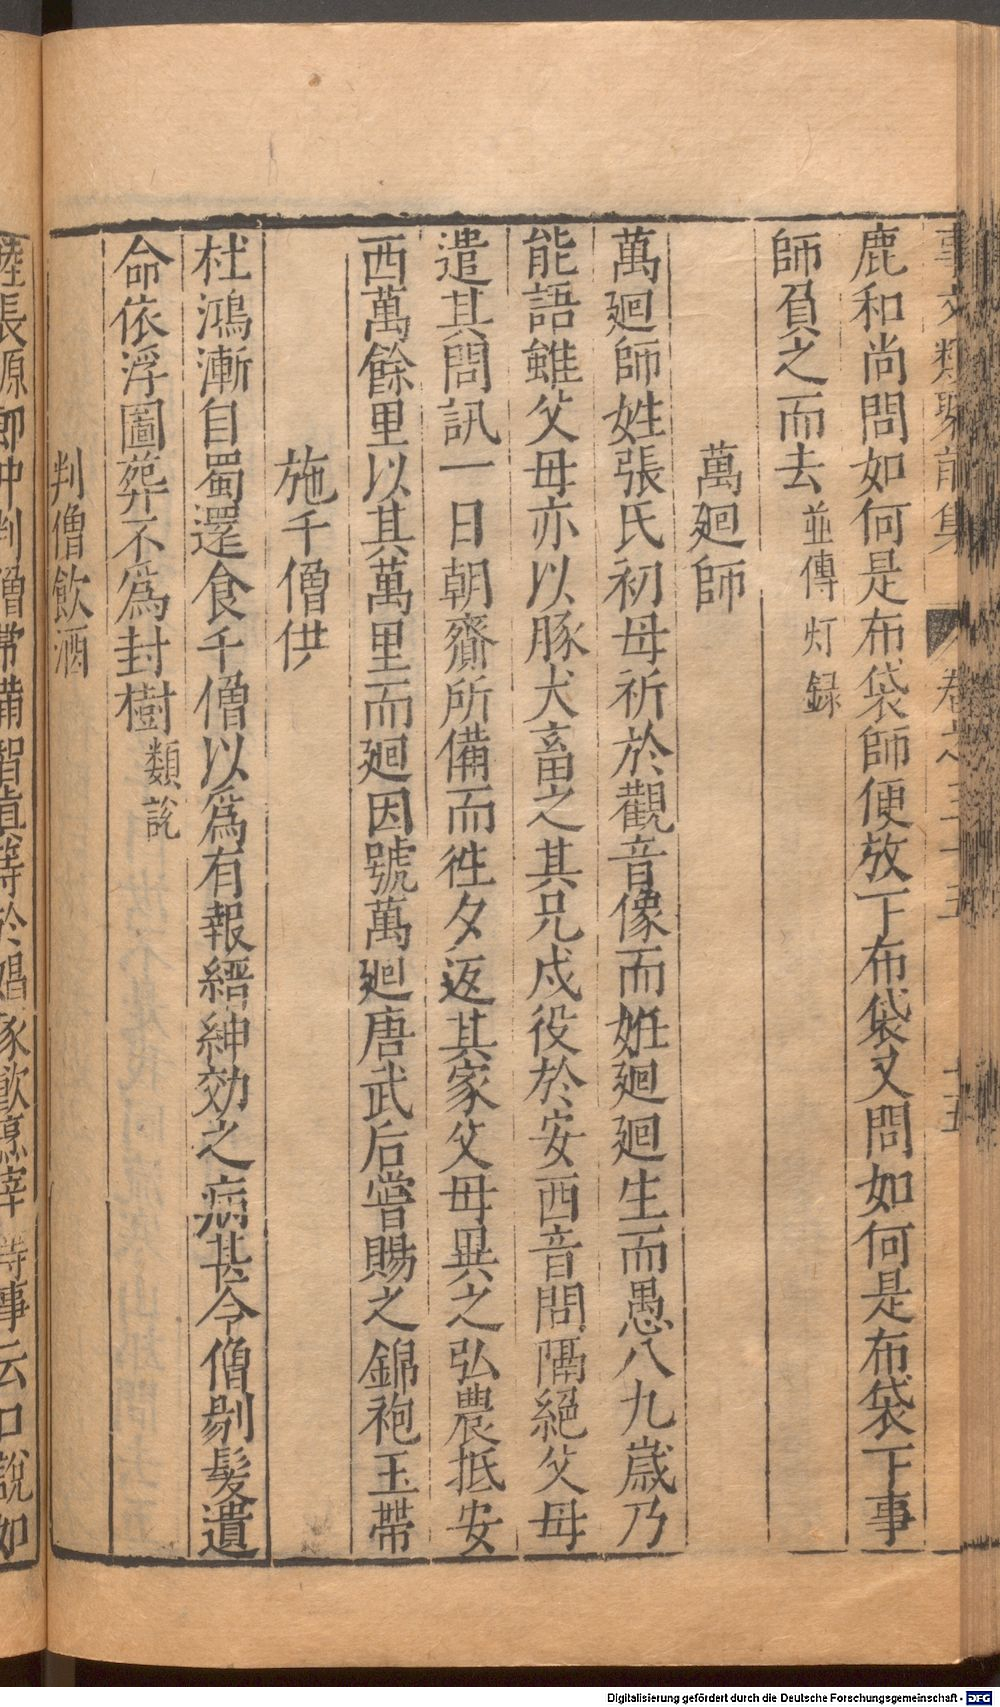 事文類聚前集 卷之三十五 十五
鹿和尚問如何是布袋師便放下布袋又問如何是布袋下事
師負之而去 並傳灯録
萬廻師
萬廻師姓張氏初母祈於觀音像而姙廻廻生而愚八九歳乃
能語雖父母亦以豚犬畜之其兄戍役於安西音問隔絕父母
遣其問訊一日朝齎所備而徃夕返其家父母異之弘農抵安
西萬餘里以其萬里而廻因號萬廻唐武后嘗賜之錦袍玉帶
施千僧供
杜鴻漸自蜀還食千僧以爲有報縉紳効之病甚令僧剔髮遺
命依浮圖葬不爲封樹 類說
判僧飲酒
陸長源郎中判僧常備智直等於娼家飲烹宰等事云口說如
Digitalisierung gefördert durch die Deutsche Forschungsgemeinschaft - DFG